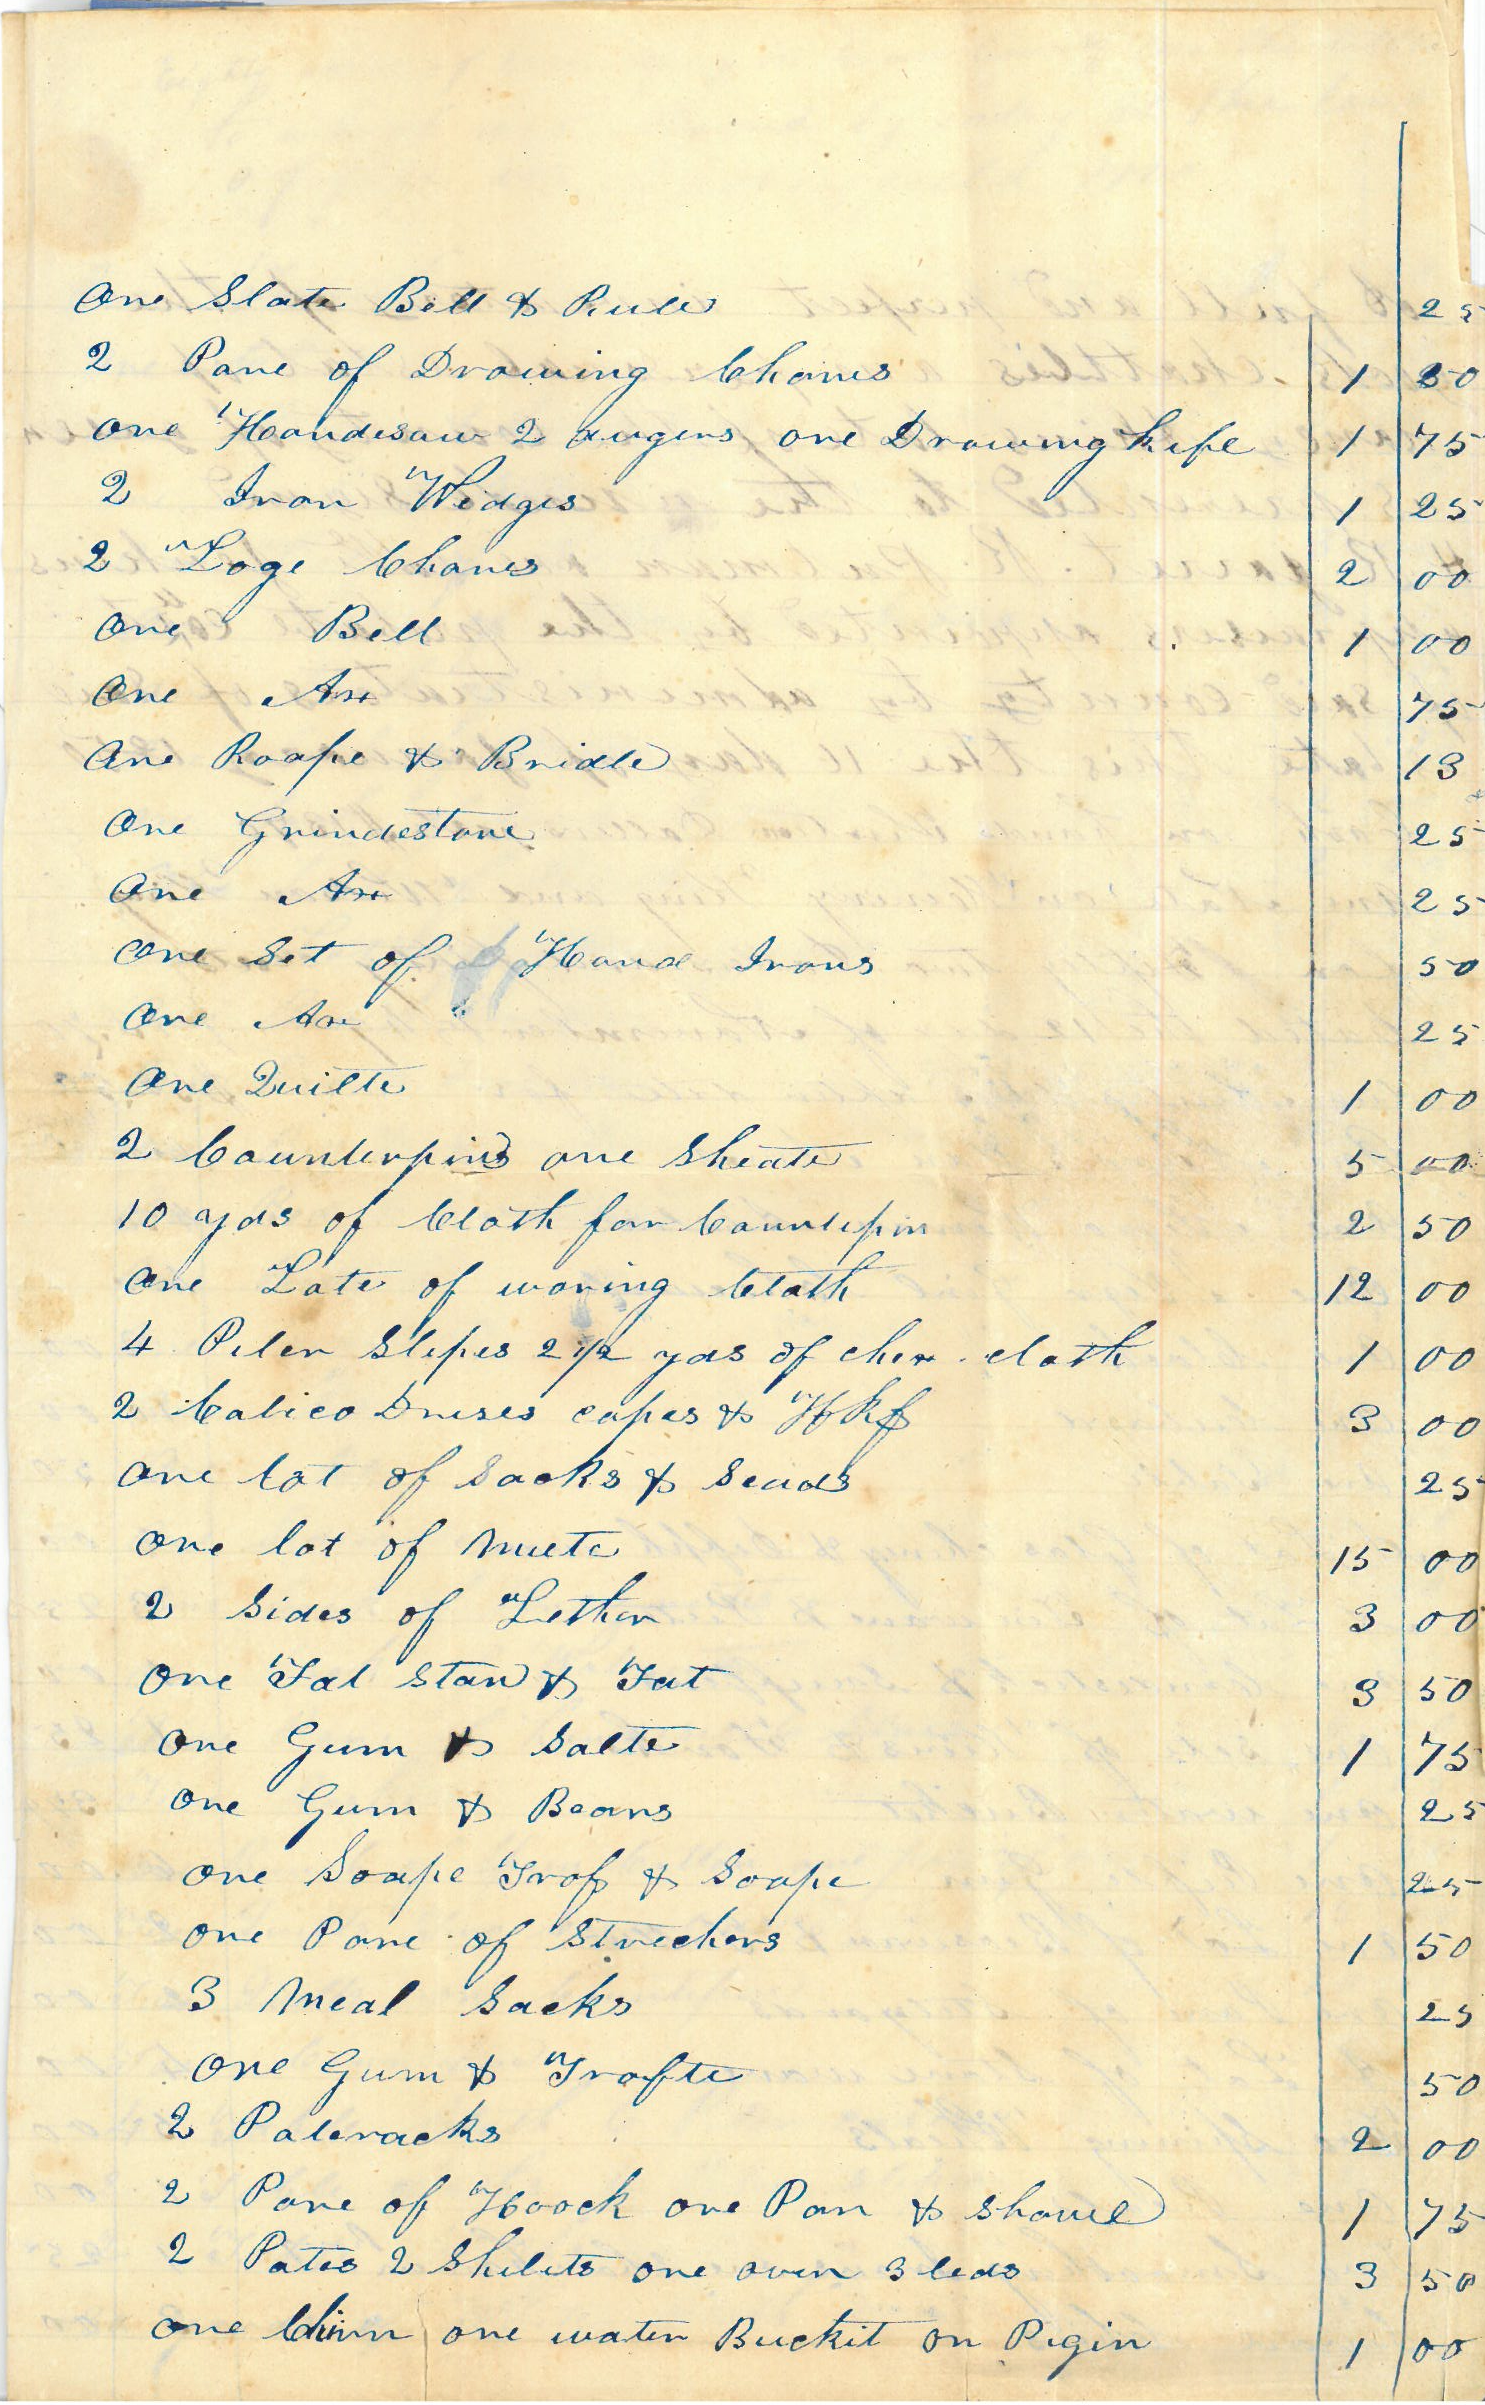 One Slate Bell & Rule 25
2 Pare of Drawing Chanes 1 50
one Handesaw 2 augers one Drawing knife 1 75
2 Iron Wedges 1 25
2 Loge Chanes 2 00
One Bell 1 00
One Ax 75
One Roape & Bridle 13
One Grindestone 25
One Ax 25
One Set of Hand Irons 50
One Ax 25
One Quilte 1 00
2 Counterpins one Sheate 5 00
10 yds of Cloth for Countepin 2 50
One Lote of woring Cloth 12 00
4 Piler Slepes 2 1/2 yds of chex cloth 1 00
2 Calico Dreses capes & Hkf 3 00
One lot of Sacks & Seads 25
One lot of Mete 15 00
2 Sides of Lether 3 00
One Fat Stand & Fat 3 50
One Gum & Salte 1 75
One Gum & Beans 25
One Soape Trof & Soape 25
One Pare of Strechers 1 50
3 Meal Sacks 25
One Gum & Trofte 50
2 Pateracks 2 00
2 Pare of Hoock one Pan & Shovel 1 75
2 Potes 2 Skilets one oven 3 leds 3 50
One Churn one water Buckit on Pigin 1 00